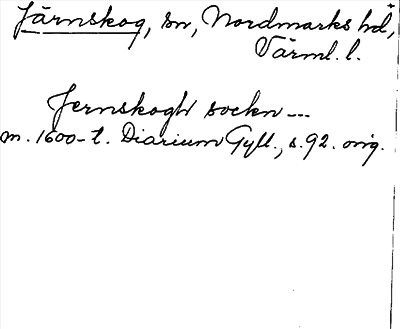 Järnskog, sn, Nordmarks hd,
Värml. l.
Jernskogh sockn ---
m. 1600-t. Diarium Gyll., s. 92. orig.